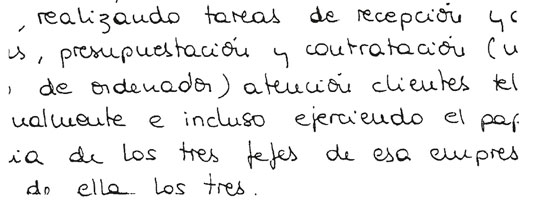 , realizando tareas de recepción y c
us, presupuestación y contratación (u
, de ordenador) atención clientes tel
ualmente e incluso ejerciendo el pap
ia de los tres jefes de esa empres
do ella los tres.